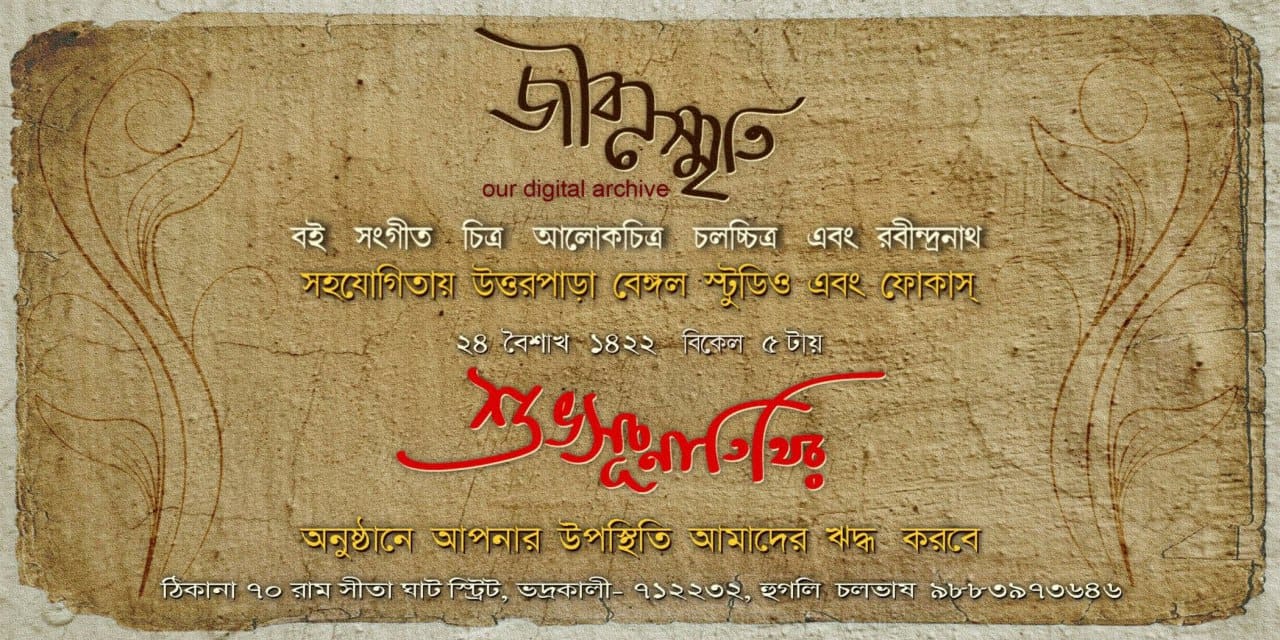 জীবনস্মৃতি
our digital archive
বই সংগীত চিত্র আলোকচিত্র চলচ্চিত্র এবং রবীন্দ্রনাথ
সহযোগিতায় উত্তরপাড়া বেঙ্গল স্টুডিও এবং ফোকাস্
২৪ বৈশাখ ১৪২২ বিকেল ৫ টায়
শুভসূচনাতিথির
অনুষ্ঠানে আপনার উপস্থিতি আমাদের ঋদ্ধ করবে
ঠিকানা ৭০ রাম সীতা ঘাট স্ট্রিট, ভদ্রকালী- ৭১২২৩২, হুগলি চলভাষ ৯৮৮৩৯৭৩৬৪৬